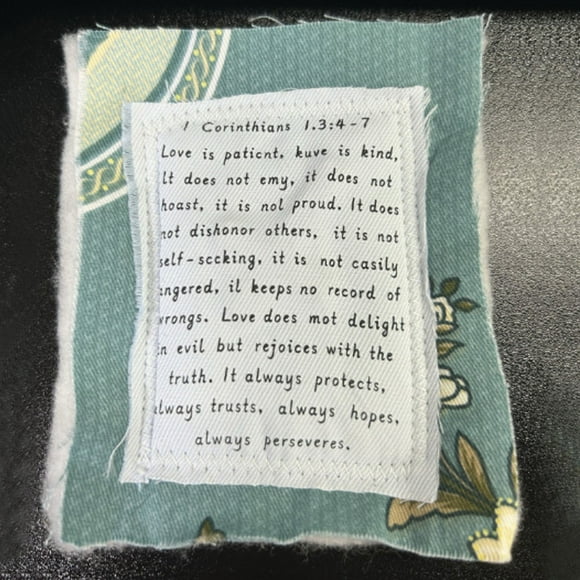 1 Corinthians 1.3:4-7
Love is paticnt, kuve is kind,
lt does not emy, it does not
hoast, it is nol proud. It does
not dishonor others, it is not
self-sccking, it is not casily
angered, il keeps no record of
wrongs. Love does mot delight
in evil but rejoices with the
truth. It always protects,
always trusts, always hopes,
always perseveres.